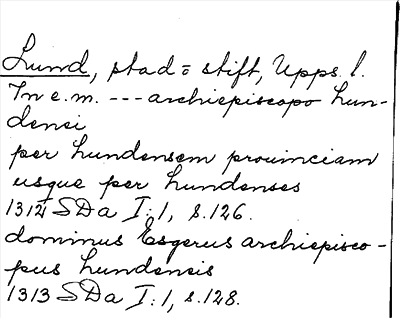 Lund, stad o stift, Upps. l.
In e.m. --- archiepiscopo lun-
densi
per lundensem prouinciam
usque per lundenses
1312 SDa I:1, s.126.
dominus Esgerus archiepisco-
pus lundensis
1313 SDa I:1, s.128.